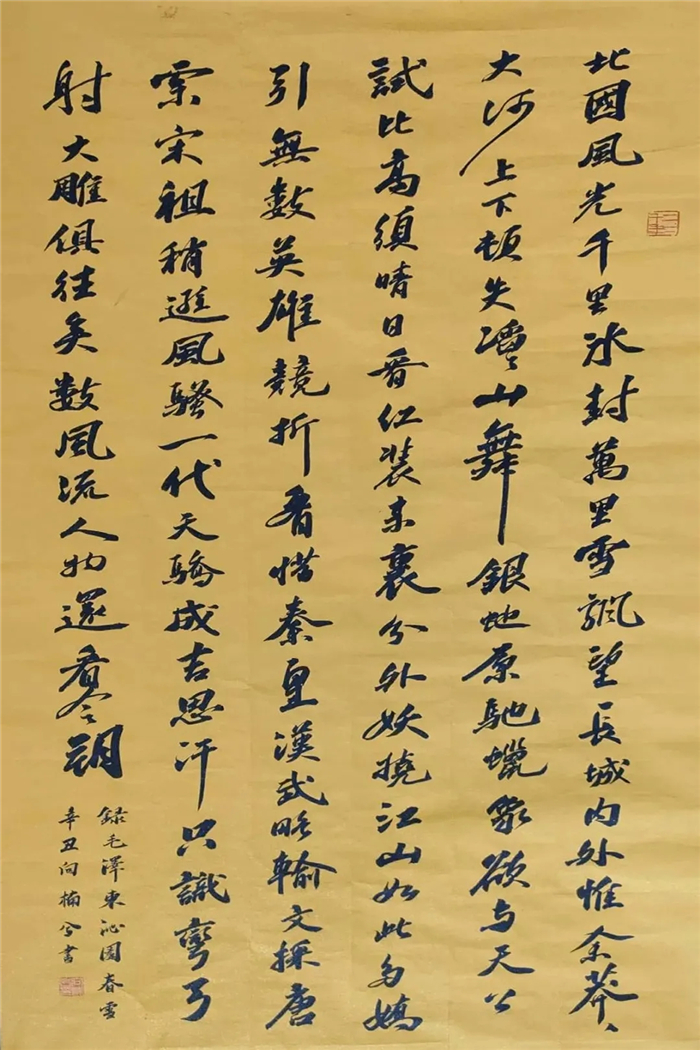 北國風光千里冰封萬里雪飄望長城内外惟余莽、
大河上下頓失滔、山舞銀蛇原馳蠟象欲与天公
試比高須晴日看红装素裹分外妖嬈江山如此多嬌
引無數英雄競折腰惜秦皇漢武略輸文採唐
宗宋祖稍遜風騷一代天驕成吉思汗只識彎弓
射大雕俱往矣數風流人物還看今朝
錄毛澤東沁園春雪
辛丑向楠書